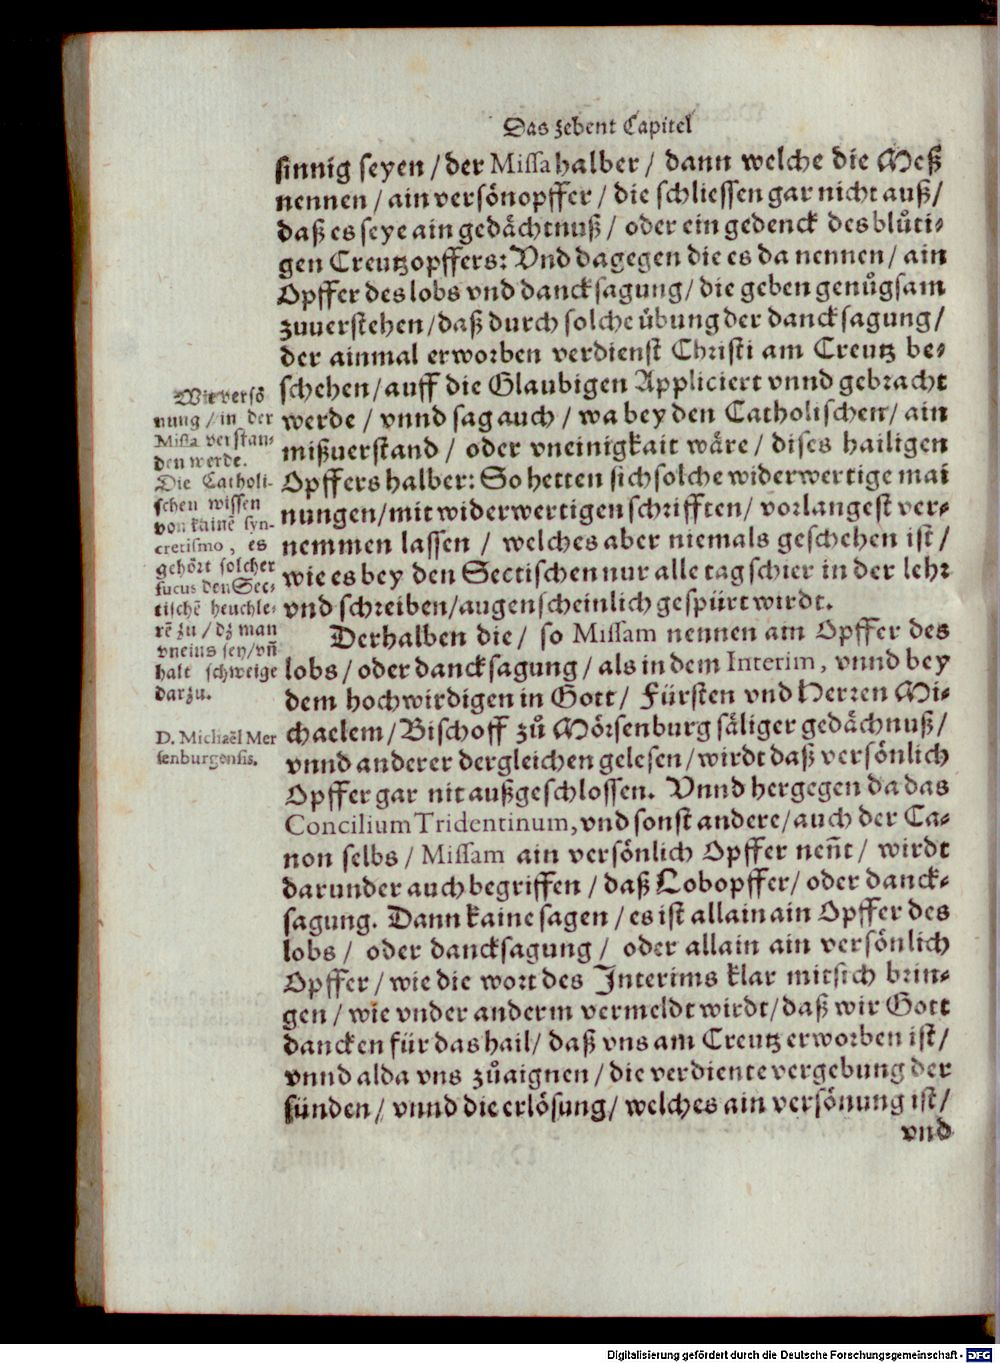 Das zehent Capitel
sinnig seyen / der Missa halber / dann welche die Meß
nennen / ain versönopffer / die schliessen gar nicht auß /
daß es seye ain gedächtnuß / oder ein gedenck des blůti-
gen Creutzopffers: Vnd dagegen die es da nennen / ain
Opffer des lobs vnd dancksagung / die geben genůgsam
zuuerstehen / daß durch solche übung der dancksagung /
der ainmal erworben verdienst Christi am Creutz be-
schehen / auff die Glaubigen Appliciert vnnd gebracht
werde / vnnd sag auch / wa bey den Catholischen / ain
mißuerstand / oder vneinigkait wäre / dises hailigen
Opffers halber: So hetten sich solche widerwertige mai
nungen / mit widerwertigen schrifften / vorlangest ver-
nemmen lassen / welches aber niemals geschehen ist /
wie es bey den Sectischen nur alle tag schier in der lehr
vnd schreiben / augenscheinlich gespürt wirdt.
Derhalben die / so Missam nennen ain Opffer des
lobs / oder dancksagung / als in dem Interim, vnnd bey
dem hochwirdigen in Gott / Fürsten vnd Herren Mi-
chaelem / Bischoff zů Mörsenburg säliger gedächnuß /
vnnd anderer dergleichen gelesen / wirdt daß versönlich
Opffer gar nit außgeschlossen. Vnnd hergegen da das
Concilium Tridentinum, vnd sonst andere / auch der Ca-
non selbs / Missam ain versönlich Opffer neñt / wirdt
darunder auch begriffen / daß Lobopffer / oder danck-
sagung. Dann kaine sagen / es ist allain ain Opffer des
lobs / oder dancksagung / oder allain ain versönlich
Opffer / wie die wort des Interims klar mitsich brin-
gen / wie vnder anderm vermeldt wirdt / daß wir Gott
dancken für das hail / daß vns am Creutz erworben ist /
vnnd alda vns zůaignen / die verdiente vergebung der
sünden / vnnd die erlösung / welches ain versönung ist /
vnd
Wie versö
nung / in der
Missa verstan-
den werde.
Die Catholi-
schen wissen
von kainẽ syn-
cretismo, es
gehört solcher
fucus den Sec-
tischẽ heuchle-
rẽ zu / dz man
vneins sey / vñ
halt schweige
darzu.
D. Michaël Mer
senburgensis.
Digitalisierung gefördert durch die Deutsche Forschungsgemeinschaft - DFG